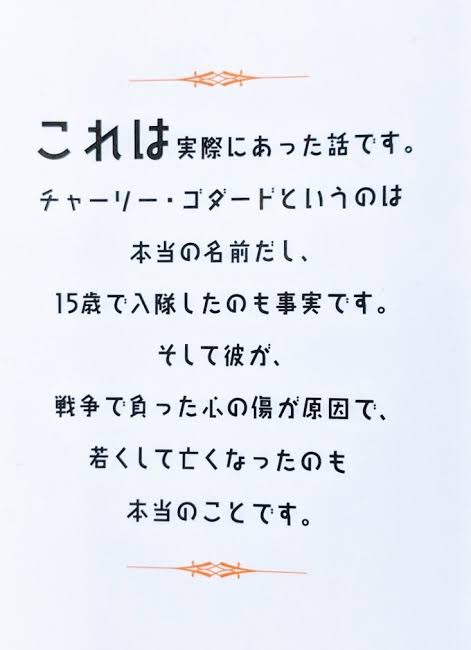 これは実際にあった話です。
チャーリー・ゴダードというのは
本当の名前だし、
15歳で入隊したのも事実です。
そして彼が、
戦争で負った心の傷が原因で、
若くして亡くなったのも
本当のことです。